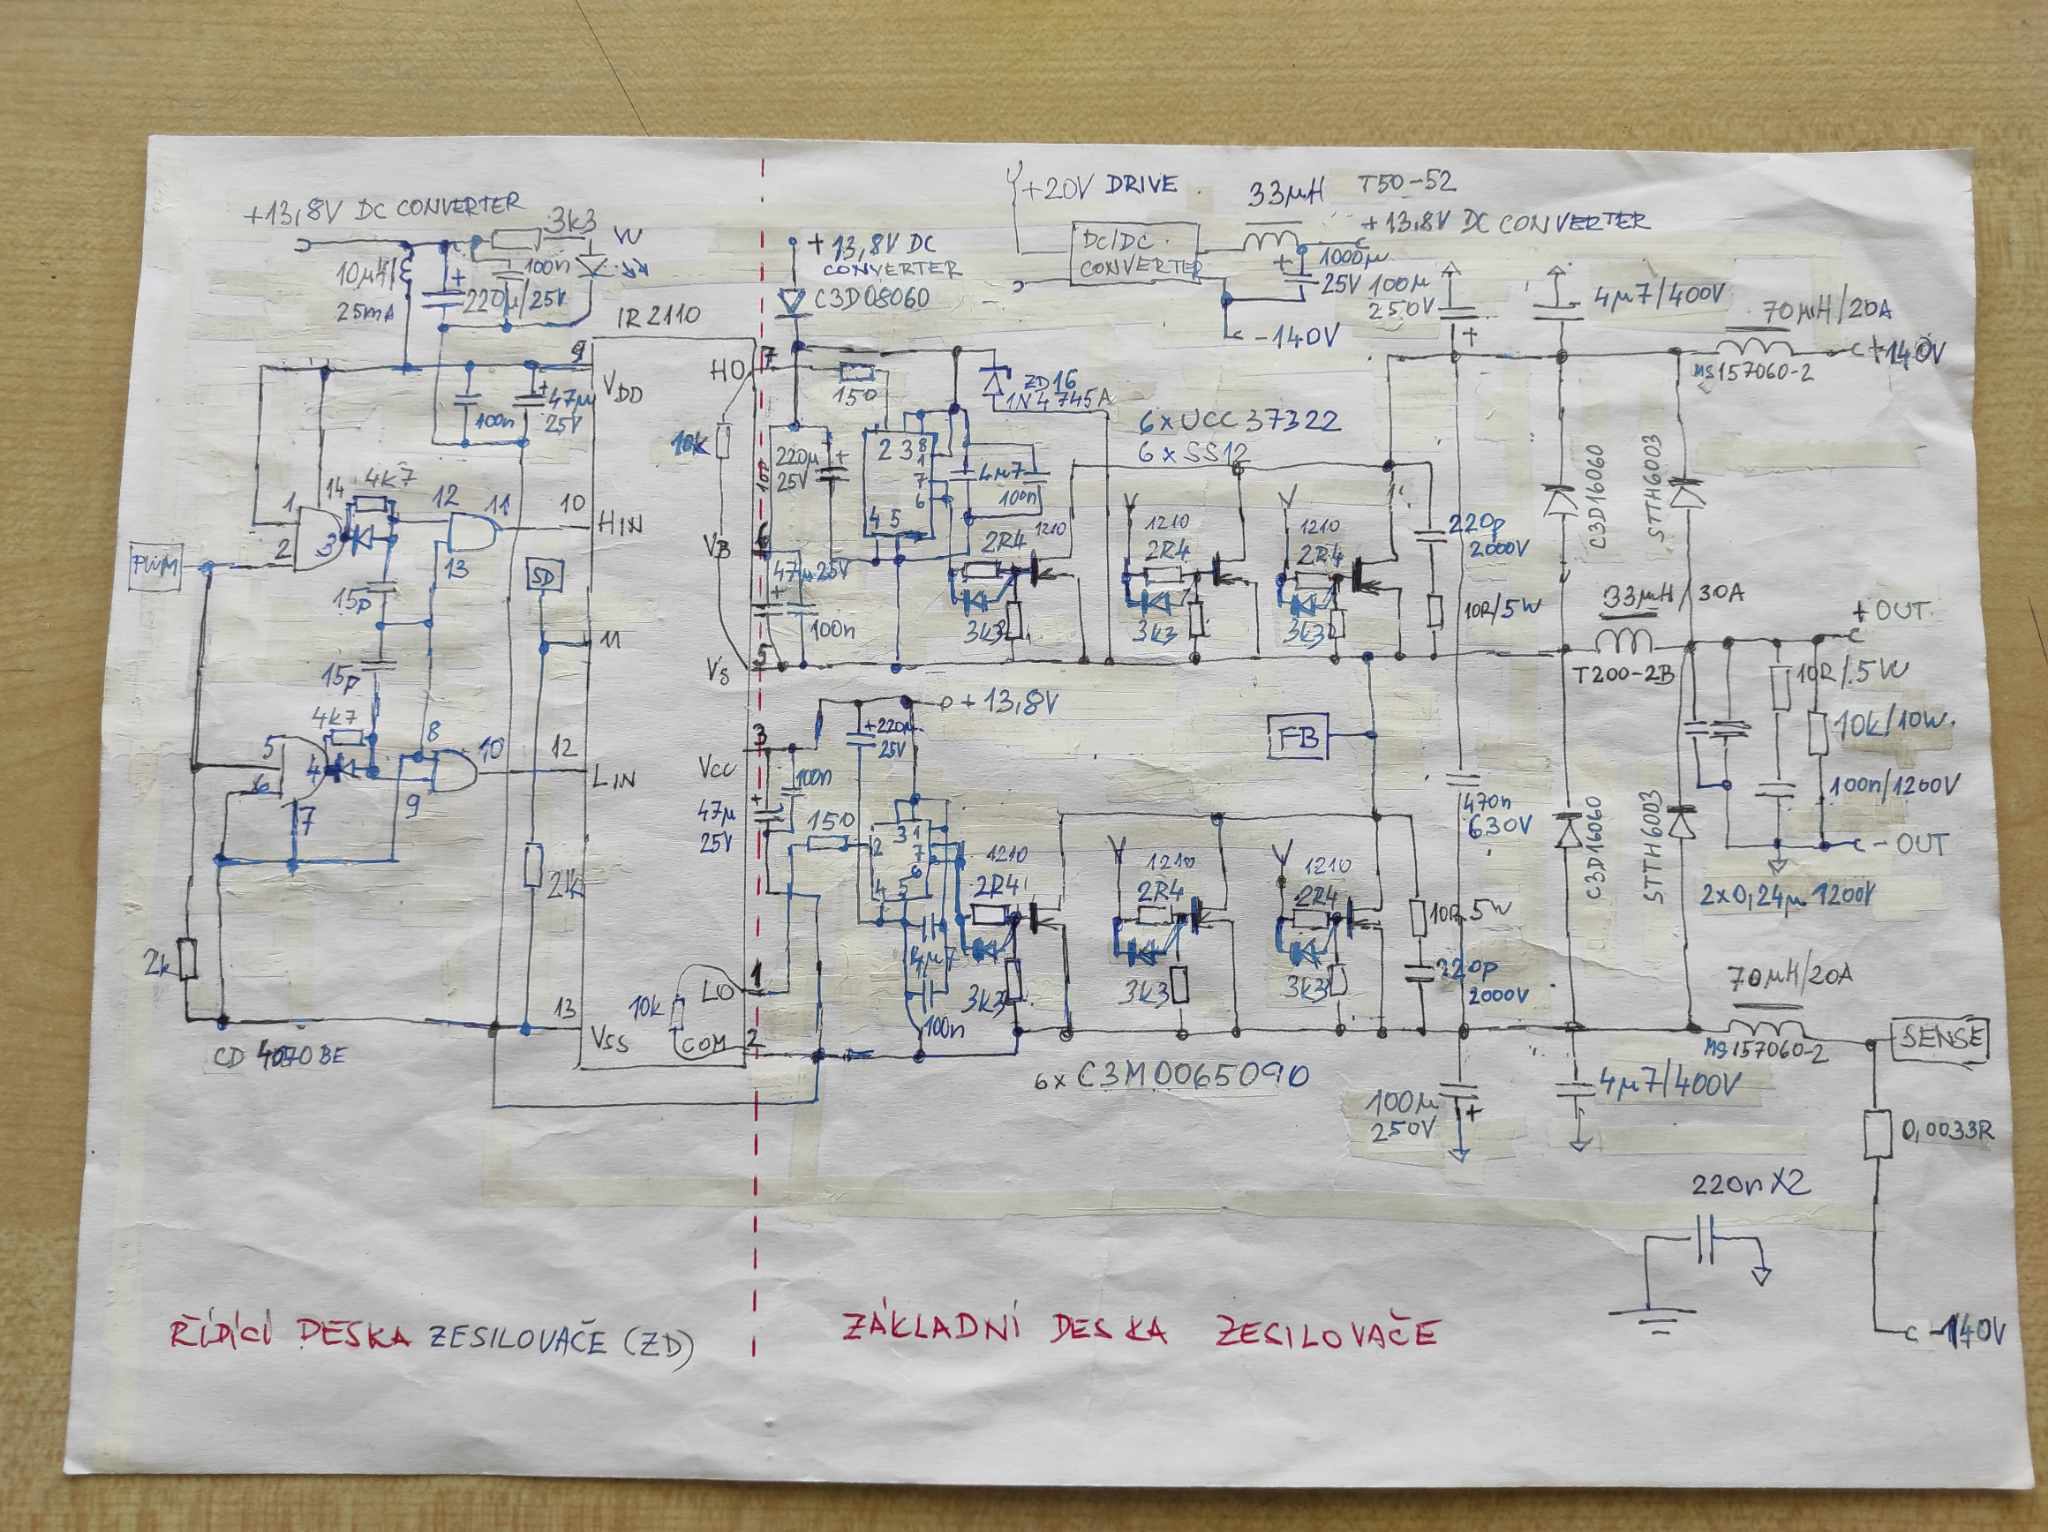 +13,8V DC CONVERTER
3k3
10µH
25mA
100n
220µ/25V
+13,8V DC
CONVERTER
C3D08060
+20V DRIVE
DC/DC
CONVERTER
33µH T50-52
+13,8V DC CONVERTER
1000µ
25V
-140V
100µ
250V
4µ7/400V
70µH/20A
+140V
MS157060-2
IR2110
9
VDD
100n
47µ
25V
HO
7
150
ZD16
1N4745A
10k
220µ
25V
2 3 8
1
7
6
4 5
4µ7
100n
6xUCC37322
6xSS12
1
2
14
3
4k7
12
13
11
10
HIN
PWM
15p
15p
SD
11
VB
6
47µ 25V
100n
VS
5
1210
2R4
3k3
1210
2R4
3k3
1210
2R4
3k3
220p
2000V
10R/5W
C3D16060
STTH6003
33µH/30A
T200-2B
+OUT
10R/5W
10k/10W
100n/1200V
-OUT
2x0,24µ 1200V
4k7
5
6
4
7
8
9
10
12
LIN
+13,8V
3
VCC
+220µ
25V
100n
47µ
25V
150
FB
470n
630V
C3D16060
STTH6003
2
3 1
7
6
4 5
4µ7
100n
1210
2R4
3k3
1210
2R4
3k3
1210
2R4
3k3
10R 5W
220p
2000V
2k
2k
LO
1
10k
COM
2
13
VSS
CD4070BE
6x C3M0065090
70µH/20A
MS157060-2
SENSE
100µ
250V
4µ7/400V
0,0033R
220n X2
-140V
ŘÍDÍCÍ DESKA ZESILOVAČE (ZD)
ZÁKLADNÍ DESKA ZESILOVAČE